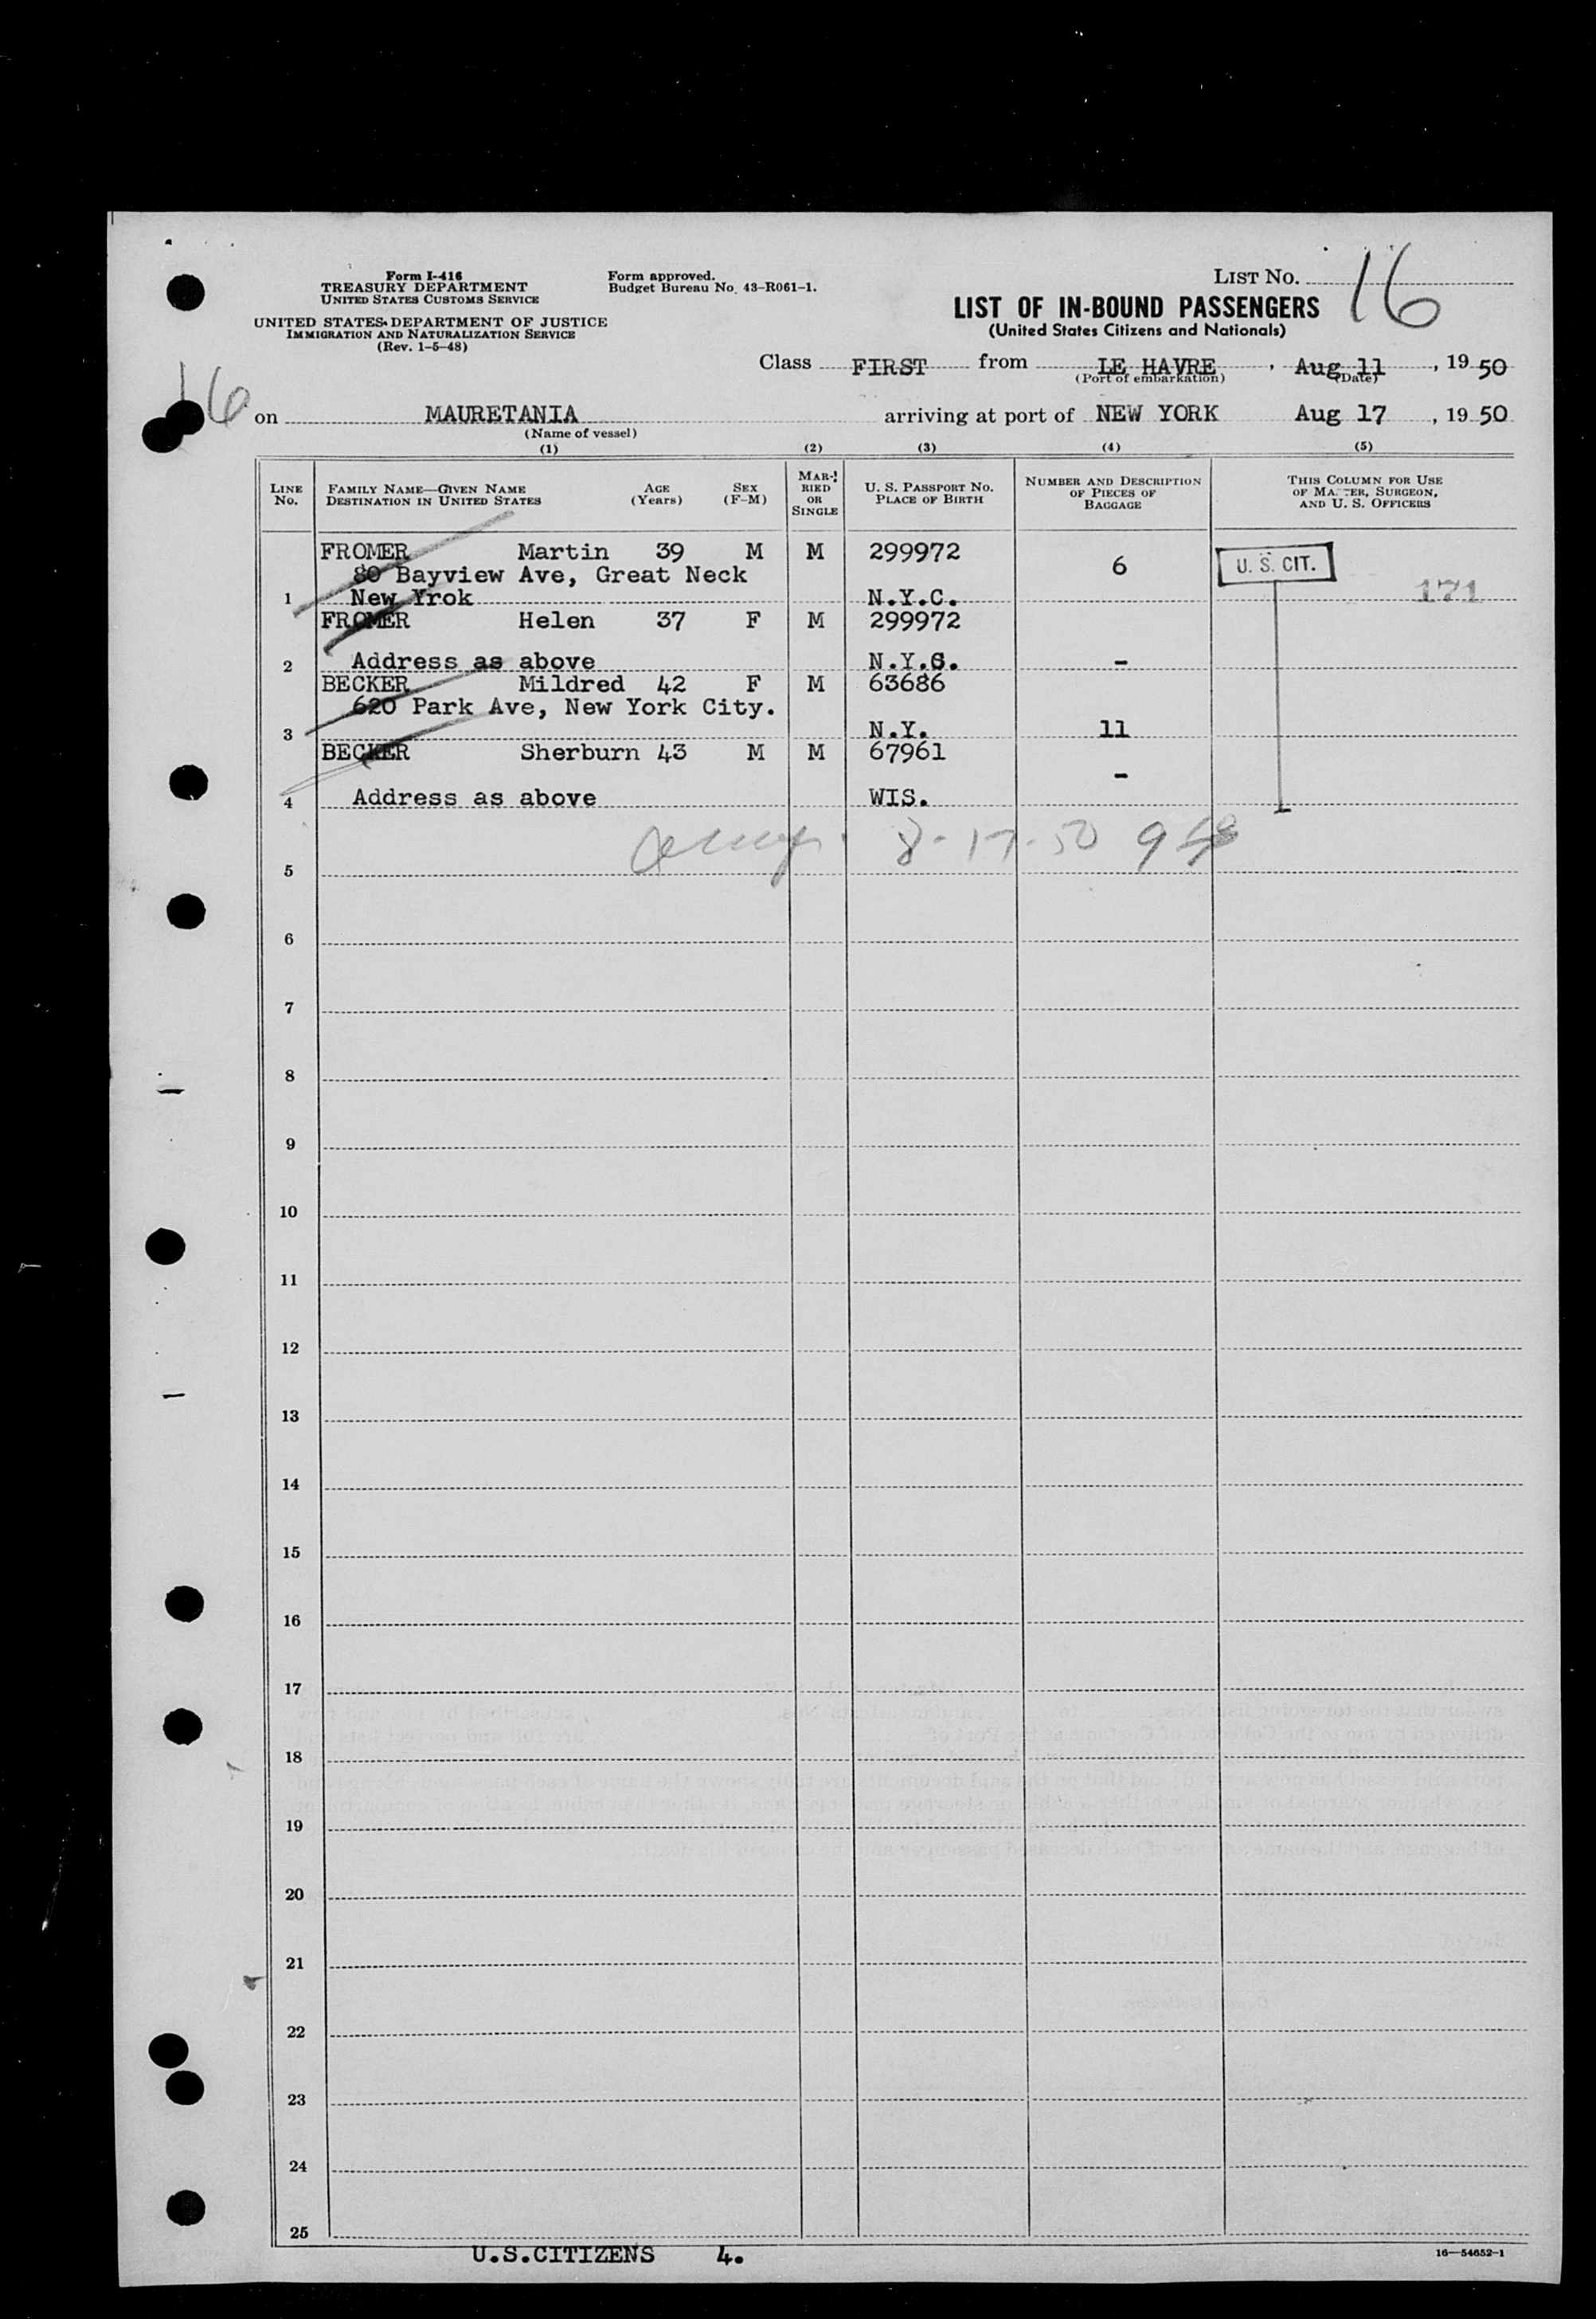 Form I-416
TREASURY DEPARTMENT
UNITED STATES CUSTOMS SERVICE
UNITED STATES DEPARTMENT OF JUSTICE
IMMIGRATION AND NATURALIZATION SERVICE
(Rev. 1-5-48)
Form approved.
Budget Bureau No. 43-R061-1.
LIST NO. 16
LIST OF IN-BOUND PASSENGERS
(United States Citizens and Nationals)
Class FIRST from LE HAVRE, Aug 11, 19 50
(Port of embarkation) (Date)
16
on MAURETANIA arriving at port of NEW YORK Aug 17, 19 50
(Name of vessel)
(1) (2) (3) (4) (5)
LINE NO.
FAMILY NAME—GIVEN NAME
DESTINATION IN UNITED STATES
AGE (Years)
SEX (F-M)
MARRIED OR SINGLE
U. S. PASSPORT NO.
PLACE OF BIRTH
NUMBER AND DESCRIPTION OF PIECES OF BAGGAGE
THIS COLUMN FOR USE OF MASTER, SURGEON, AND U. S. OFFICERS
FROMER Martin 39 M M 299972
80 Bayview Ave, Great Neck 6 U. S. CIT.
1 New Yrok N.Y.C. 171
FROMER Helen 37 F M 299972
2 Address as above N.Y.C. -
BECKER Mildred 42 F M 63686
620 Park Ave, New York City.
3 N.Y. 11
BECKER Sherburn 43 M M 67961
-
4 Address as above WIS.
8-17-50
5
6
7
8
9
10
11
12
13
14
15
16
17
18
19
20
21
22
23
24
25
U.S.CITIZENS 4.
16—54652-1